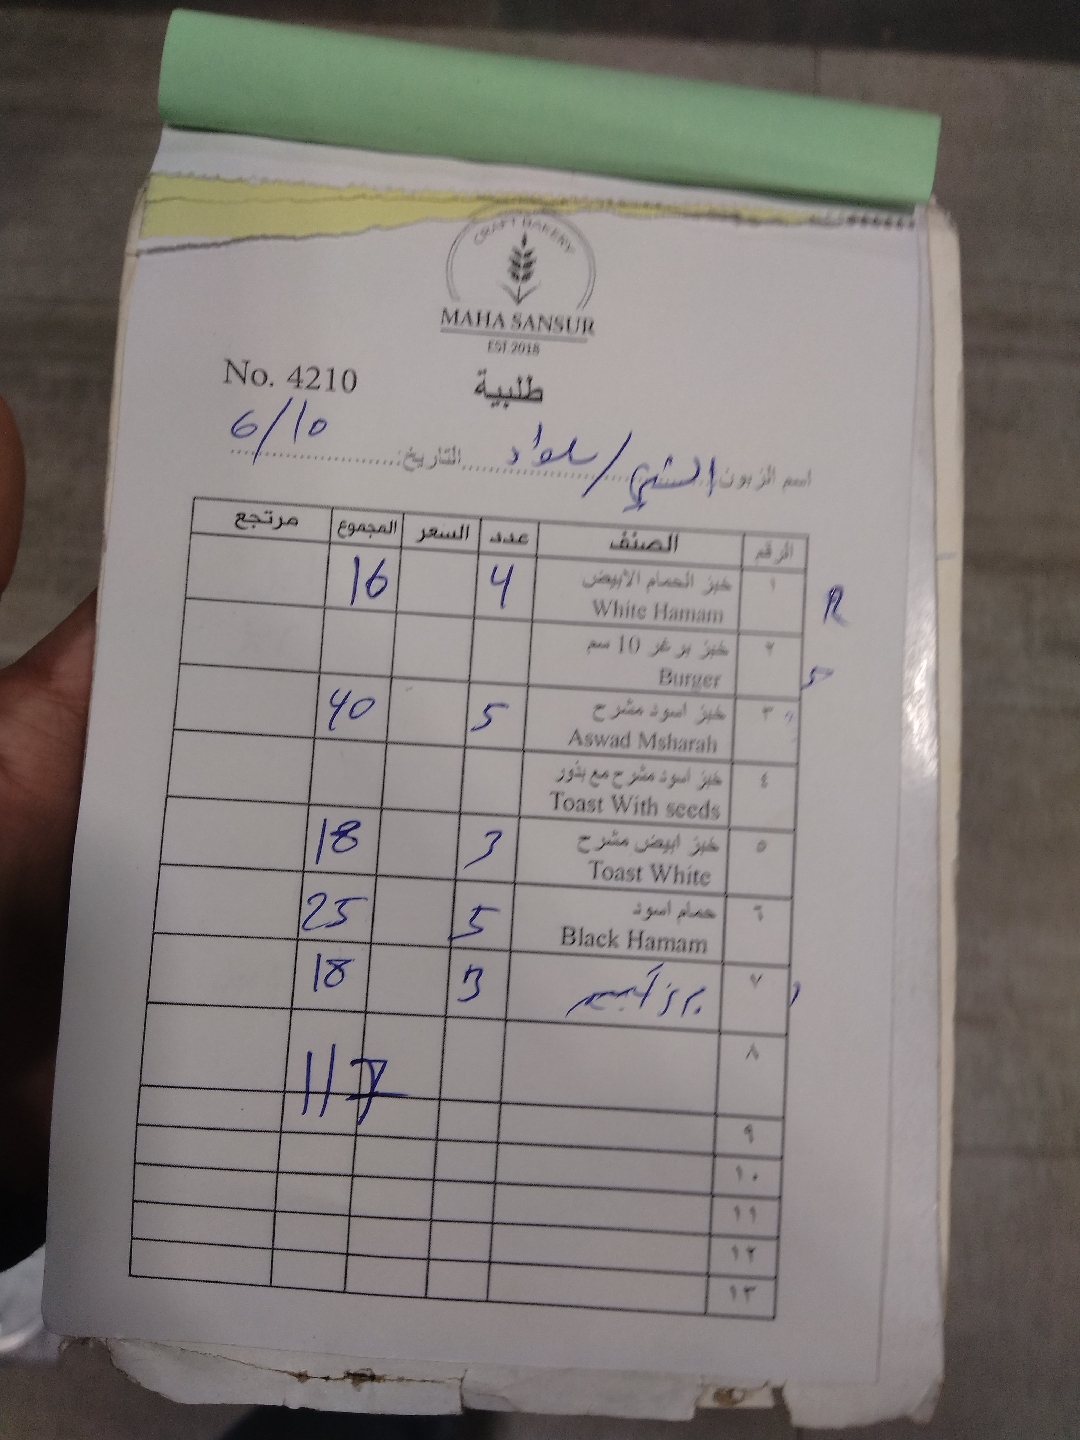 CRAFT BAKERY
MAHA SANSUR
EST 2018
No. 4210 طلبية
اسم الزبون: / سلواد التاريخ: 6/10
الرقم الصنف عدد السعر المجموع مرتجع
١ خبز الحمام الأبيض 4 16
White Hamam
R
٢ خبز برغر 10 سم
Burger
٣ خبز اسود مشرح 5 40
Aswad Msharah
٤ خبز اسود مشرح مع بذور
Toast With seeds
٥ خبز ابيض مشرح 3 18
Toast White
٦ حمام اسود 5 25
Black Hamam
٧ 3 18
٨ 117
٩
١٠
١١
١٢
١٣